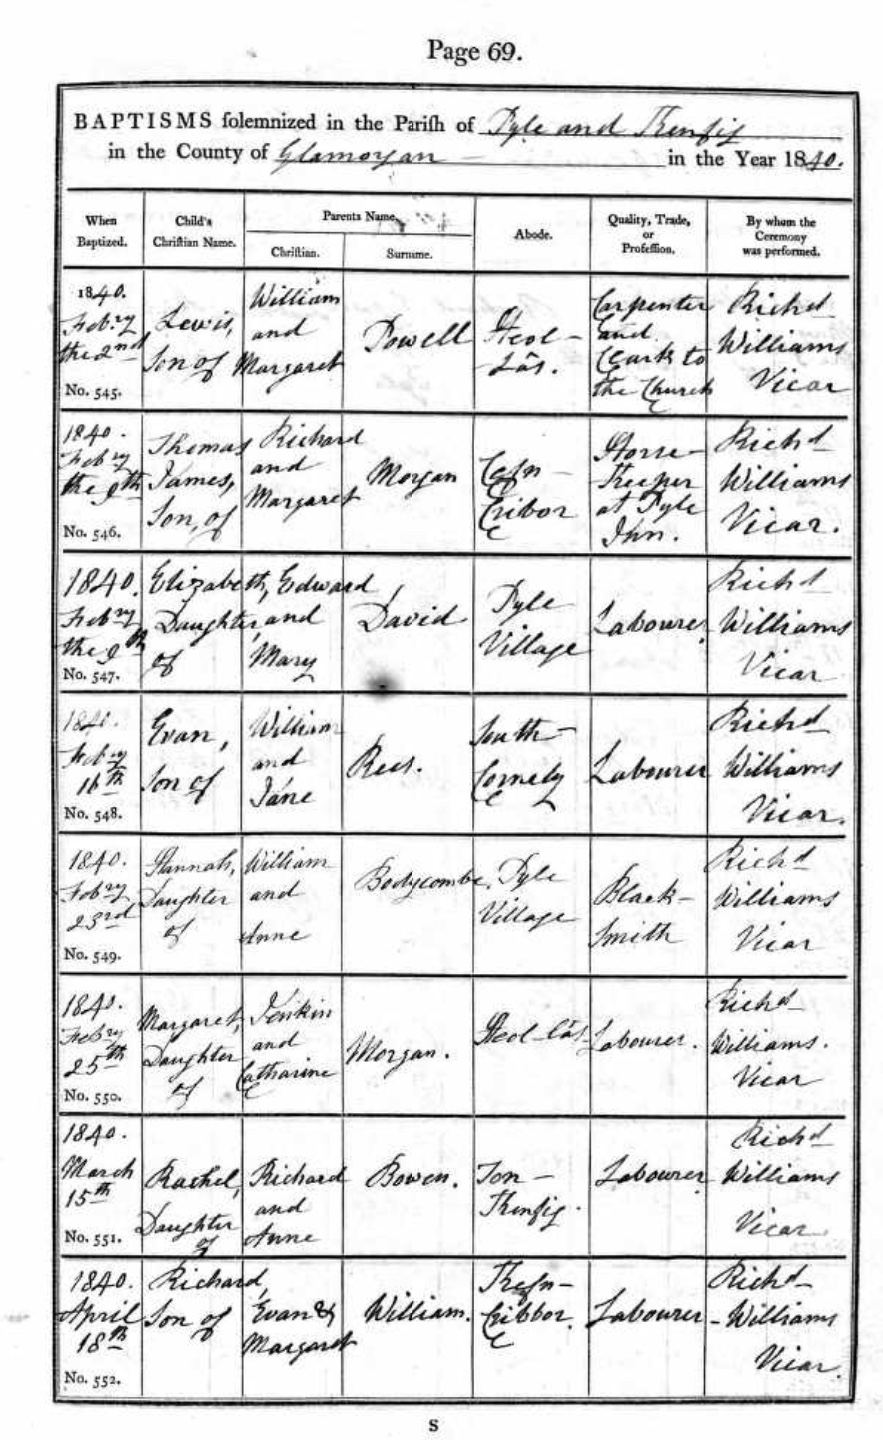 Page 69.
BAPTISMS solemnized in the Parish of Pyle and Kenfig
in the County of Glamorgan — in the Year 1840.
When Baptized.
Child's Christian Name.
Parents Name.
Christian.
Surname.
Abode.
Quality, Trade, or Profession.
By whom the Ceremony was performed.
1840.
Feb.ry
the 2nd
No. 545.
Lewis,
Son of
William
and
Margaret
Powell
Heol-
-lâs.
Carpenter
and
Clark to
the Church
Richd
Williams
Vicar
1840.
Feb.ry
the 9th
No. 546.
Thomas
James,
Son, of
Richard
and
Margaret
Morgan
Cefn-
Cribor
Horse-
Keeper
at Pyle
Inn.
Richd
Williams
Vicar.
1840.
Feb.ry
the 9th
No. 547.
Elizabeth,
Daughter
of
Edward
and
Mary
David
Pyle
Village
Labourer
Richd
Williams
Vicar
1840.
Feb.ry
16th
No. 548.
Evan,
Son of
William
and
Jane
Rees.
South-
Cornely
Labourer
Richd
Williams
Vicar.
1840.
Feb.ry
23rd
No. 549.
Hannah,
Daughter
of
William
and
Anne
Bodycombe.
Pyle
Village
Black-
Smith
Richd
Williams
Vicar
1840.
Feb.ry
25th
No. 550.
Margaret,
Daughter
of
Jenkin
and
Catharine
Morgan.
Heol-lâs
Labourer.
Richd
Williams.
Vicar
1840.
March
15th
No. 551.
Rachel,
Daughter
of
Richard
and
Anne
Bowen.
Ton-
Kenfig.
Labourer
Richd
Williams
Vicar
1840.
April
18th
No. 552.
Richard,
Son of
Evan &
Margaret
William.
Kefn-
Cribbor.
Labourer
Richd
Williams
Vicar.
S